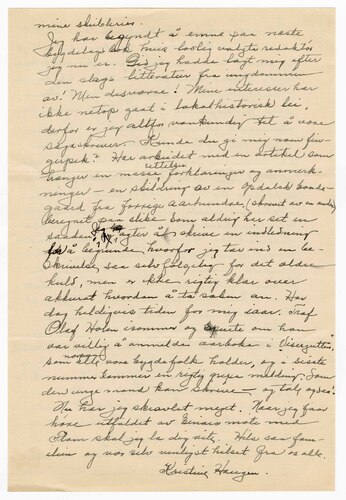 mine skriblerier.
Jeg har begyndt å emne paa næste
bygdelags bok hvis lovlig valgte redaktør
jeg nu er. Gid jeg hadde lagt mig efter
den slags litteratur fra ungdommen
av! Men desværre! Mine interesser har
ikke netop gaat i lokalhistorisk lei,
derfor er jeg altfor vankundig til å være
Kunde du gi mig nom fin-
gerpek? Har arbeidet med en artikel som
trænger en masse rettelser forklaringer og anmerk-
ninger – en skildring av en Opdalsk bonde-
gaard fra forrige aarhundre (skrevet av en anden)
beregnet paa slike som aldrig her set en
saadan. Jeg agter åt skrive en indledning
for å begrunde hvorfor jeg tar med en be-
skrivelse saa selvfølgelig for det ældre
kuld, men er ikke rigtig klar over
akkurat hvordan å ta saken an. Har
dog heldigvis tiden for mig isaar. Traf
Olaf Holen isommer og spurte om han
var villig å anmelde aarboka i Visergutten
som næsten alle vore bygdefolk holder, og i siste
nummer kommer en rigtig grepa melding. Som
den unge mand kan skrive – og tale også!
Nu har jeg skravlet meget. Naar jeg faar
høre utfaldet av Einars møte med
Flom skal jeg la dig vite. Hils saa fam-
ilien og vær selv venligst hilset fra os alle.
Kristine Haugen.